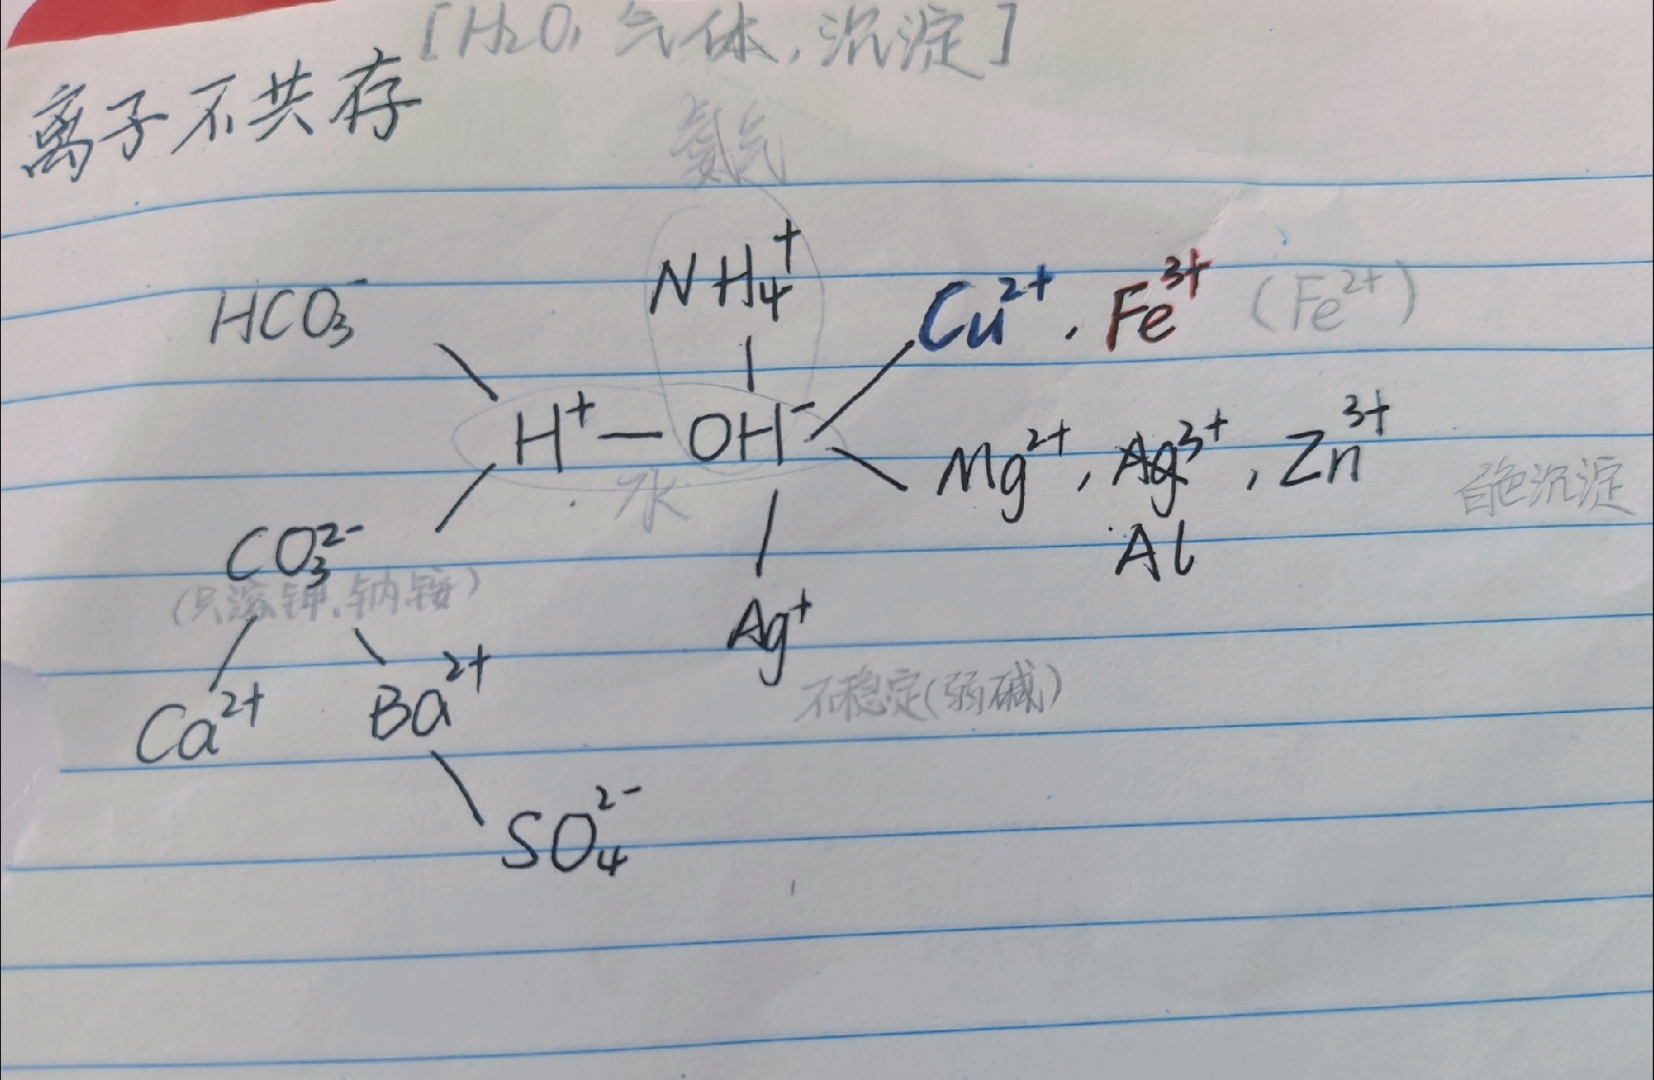 [H₂O, 气体, 沉淀]
离子不共存
氨气
NH₄⁺
HCO₃⁻
Cu²⁺, Fe³⁺ (Fe²⁺)
H⁺ — OH⁻
水
Mg²⁺, Ag³⁺, Zn³⁺
白色沉淀
Al
CO₃²⁻
(只溶钾、钠铵)
Ag⁺
不稳定(弱碱)
Ca²⁺ Ba²⁺
SO₄²⁻